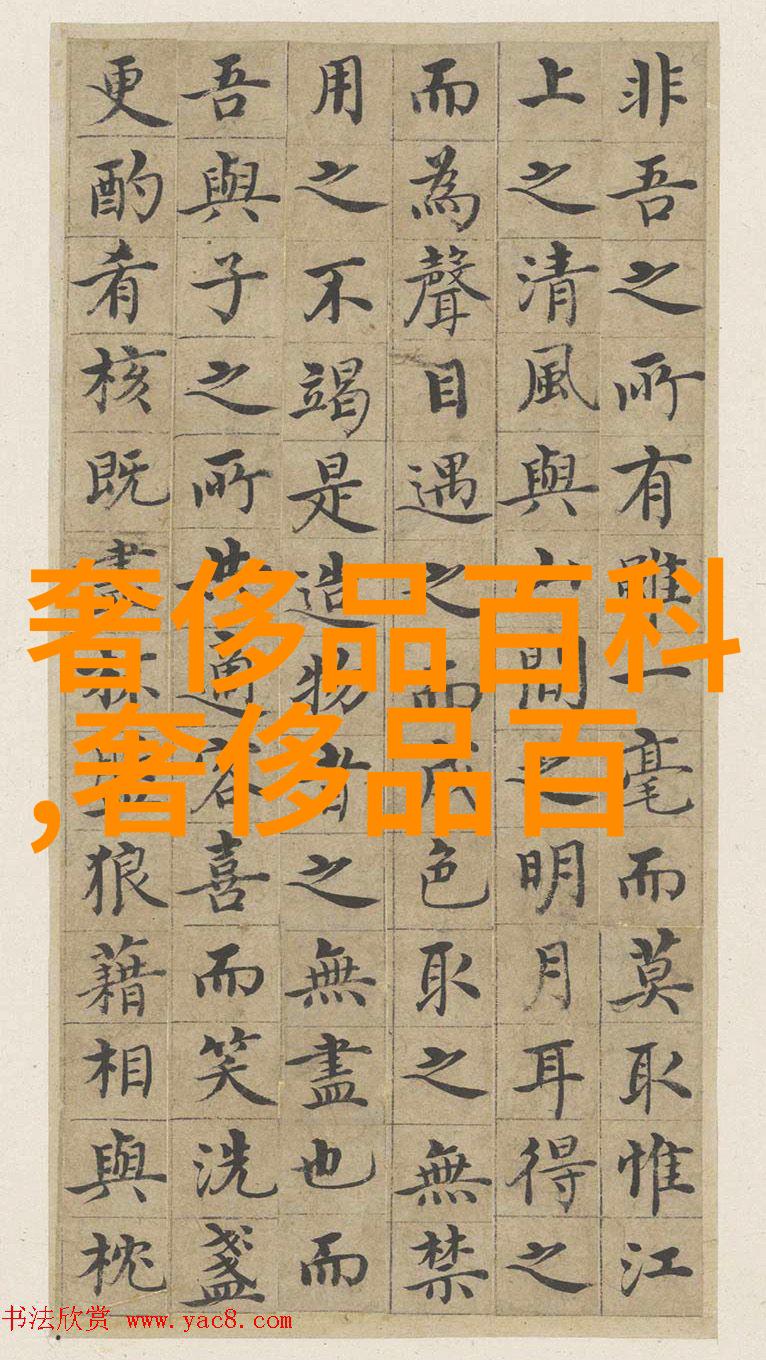 非吾之所有雖一毫而莫取惟江
上之清風與山間之明月耳得之
而為聲目遇之而成色取之無禁
用之不竭是造物者之無盡也而
吾與子之所共適客喜而笑洗盞
更酌肴核既盡杯盤狼藉相與枕
奢侈品百科
,奢侈品百
书法欣赏 www.yac8.com